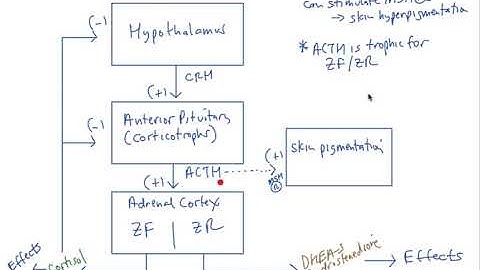 can stimulate MSH
→ skin hyperpigmentation
* ACTH is trophic for
ZF/ZR
(-)
Hypothalamus
CRH
(+)
(-)
Anterior Pituitary
(corticotrophs)
ACTH
(+)
(+)
MSH
R
skin pigmentation
Adrenal Cortex
ZF | ZR
Effects
Cortisol
DHEA-S
Androstenedione
Effects